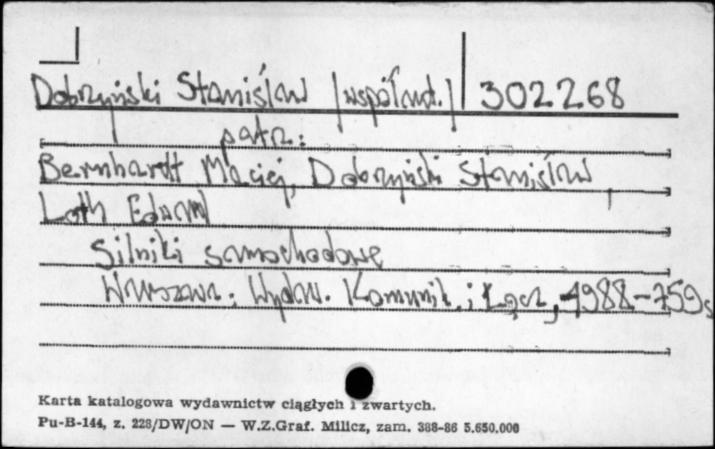 Dobrzyński Stanisław /współaut./ 302268
patrz:
Bernhardt Maciej, Dobrzyński Stanisław,
Loth Edward
Silniki samochodowe
Warszawa: Wydaw. Komunik. i Łącz., 1988 - 759 s
Karta katalogowa wydawnictw ciągłych i zwartych.
Pu-B-144, z. 228/DW/ON — W.Z.Graf. Milicz, zam. 388-86 5.650.000